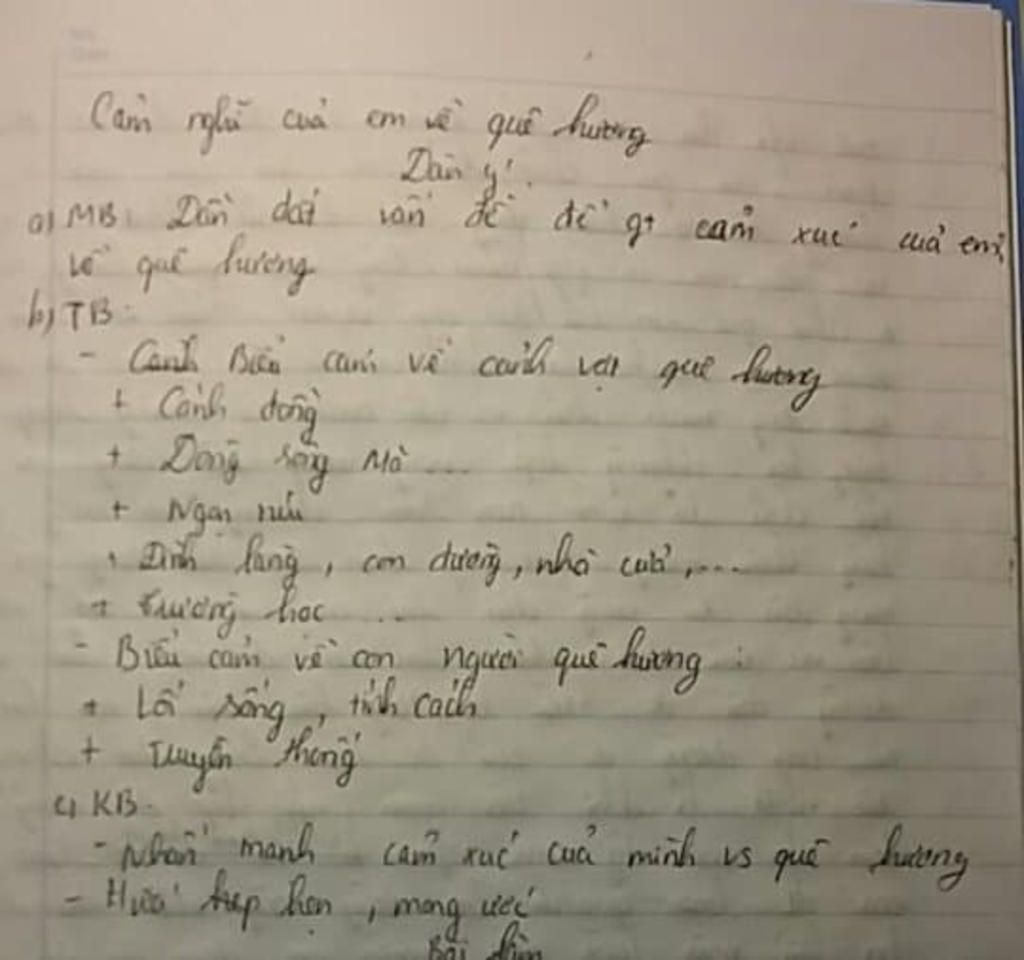 Cảm nghĩ của em về quê hương
Dàn ý
a) MB: Dẫn dắt vấn đề để gt cảm xúc của em
về quê hương
b) TB:
- Cảnh Biểu cảm về cảnh vật quê hương
+ Cánh đồng
+ Dòng sông Mã ...
+ Ngọn núi
+ Đình làng, con đường, nhà cửa, ...
+ Trường học ...
- Biểu cảm về con người quê hương :
+ Lối sống, tính cách
+ Truyền thống
c) KB.
- Nhấn mạnh cảm xúc của mình vs quê hương
- Hứa hẹn, mong ước
Bài làm